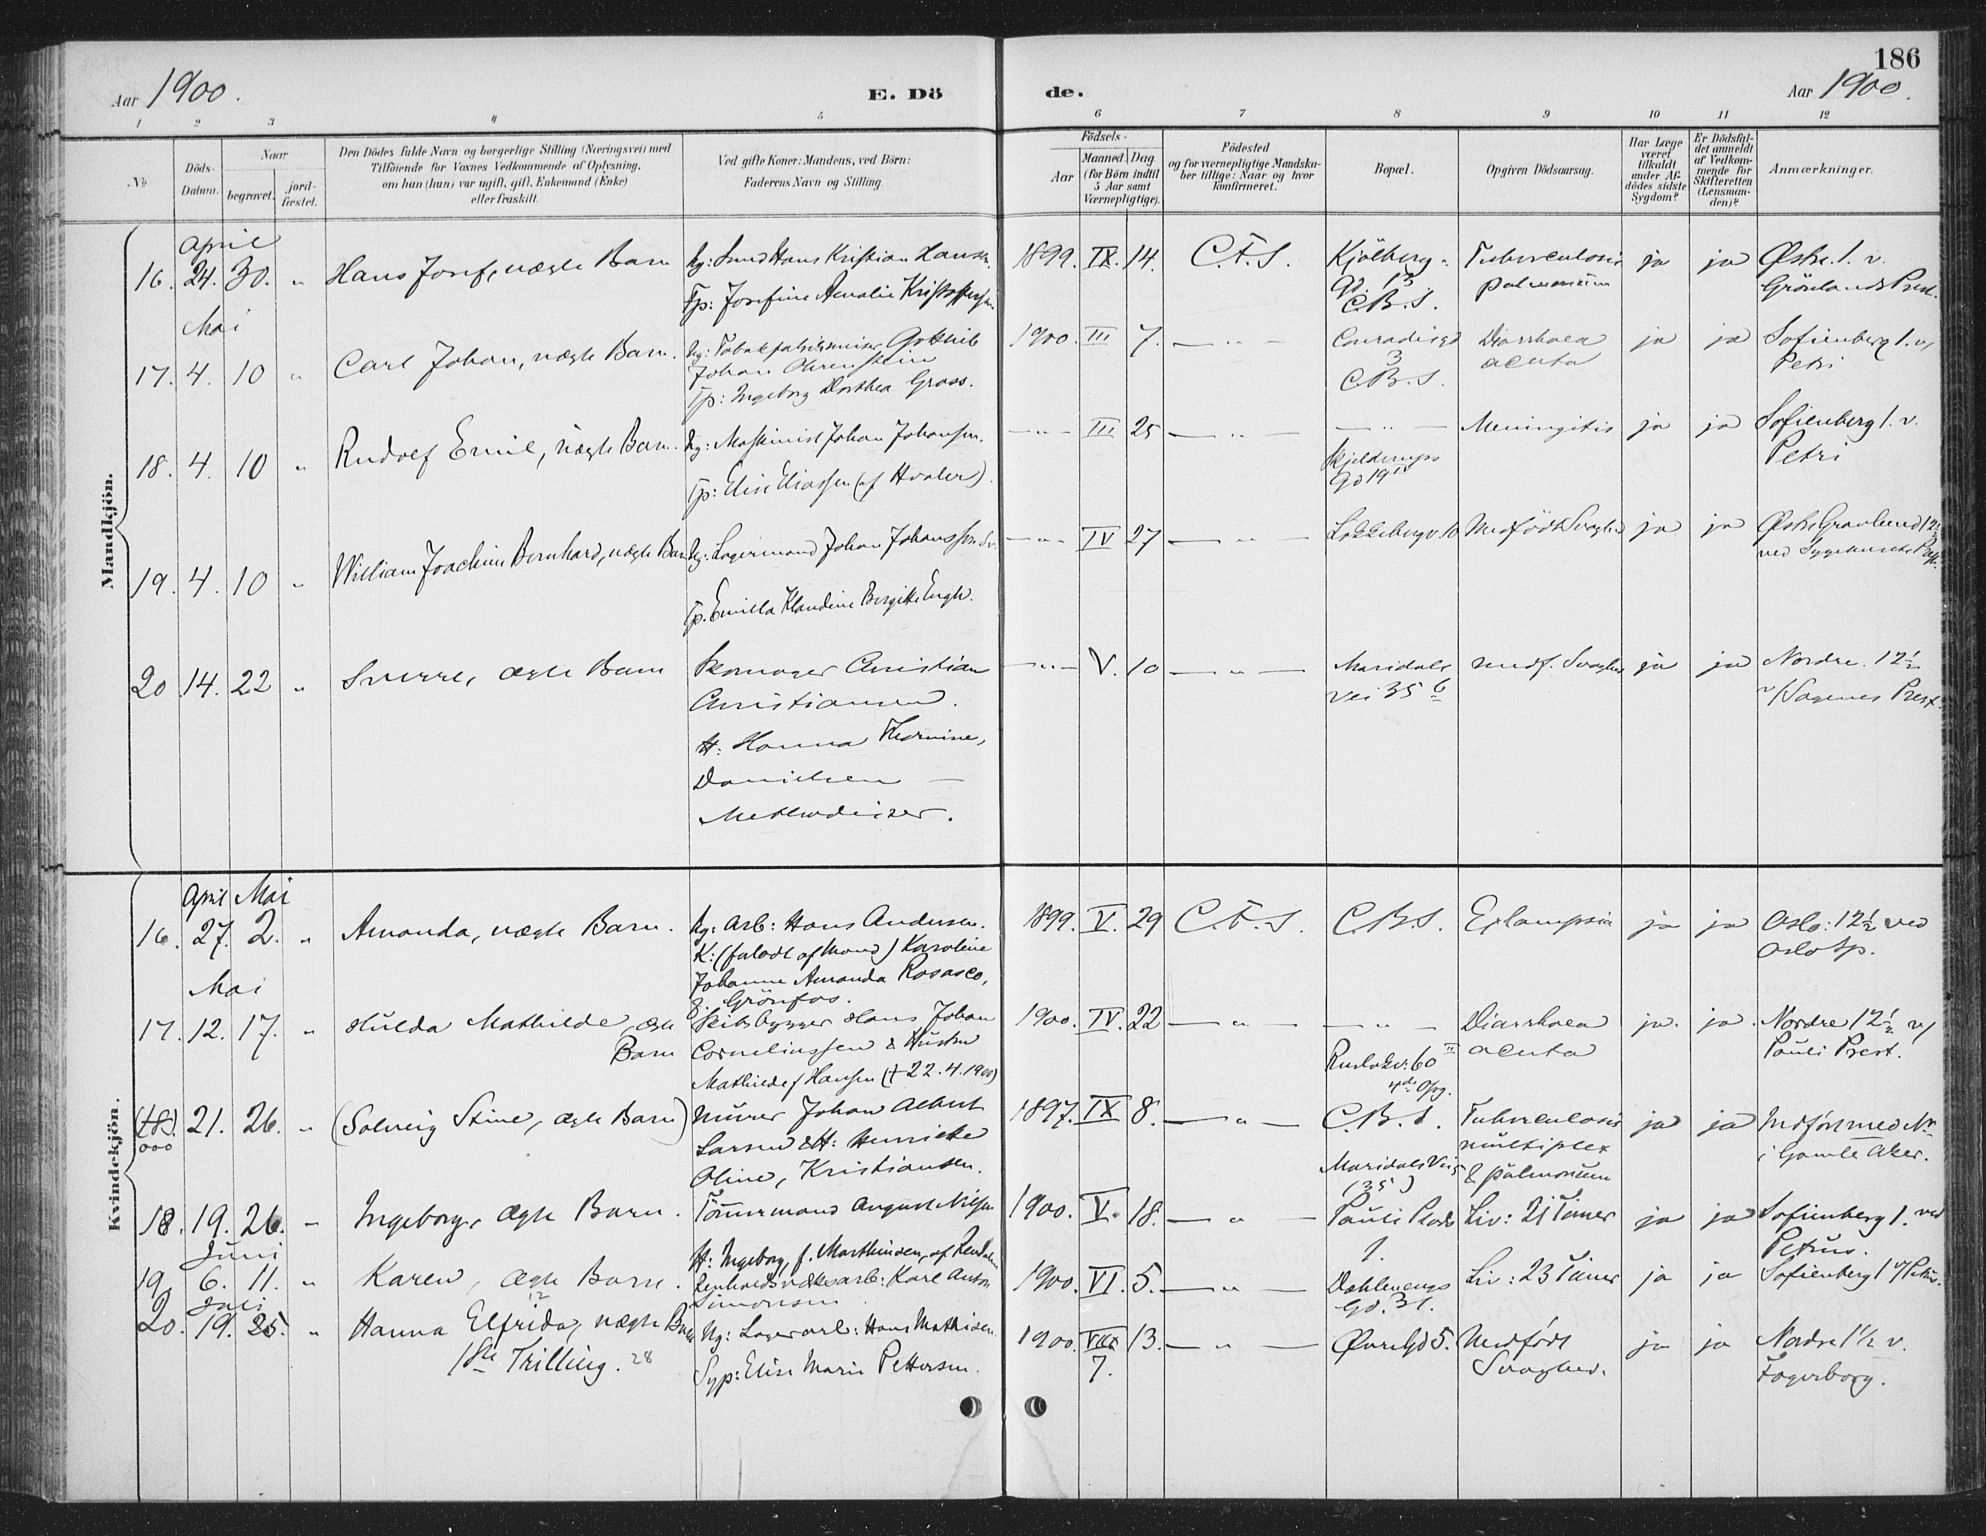 186
Aar 1900.
E. Dö
de.
Aar 1900.
1 2 3 4 5 6 7 8 9 10 11 12
No
Döds-
Datum.
Naar
begravet.
jord-
fæstet.
Den Dödes fulde Navn og borgerlige Stilling (Næringsvei) med
Tilföiende for Voxnes Vedkommende af Oplysning,
om han (hun) var ugift, gift, Enkemand (Enke)
eller fraskilt.
Ved gifte Koner: Mandens, ved Börn:
Faderens Navn og Stilling.
Födsels-
Aar
Maaned. Dag.
(for Börn indtil
5 Aar samt
Værnepligtige).
Födested
og for værnepligtige Mandska-
ber tillige: Naar og hvor
konfirmeret.
Bopæl.
Opgiven Dödsaarsag.
Har Læge
været
tilkaldt
under Af-
dödes sidste
Sygdom?
Er Dödsfal-
det anmeldt
af Vedkom-
mende for
Skifteretten
(Lensman-
den)?
Anmærkninger.
Mandkjön.
April
16. 24. 30. " Hans Josef, uægte Barn
Ug: Hans Kristian Hansen.
Tp: Josefine Amalie
1899. IX. 14. C.F.S.
Kjölberg-
Gd. 13
C.B.S.
Tuberculosis
pulmonum
ja ja
Østre. 1. v.
Grönlands Prest.
Mai
17. 4. 10 " Carl Johan, uægte Barn.
Ug: Gottlieb
Johan Ohrenstein
Tp: Ingeborg Dorthea Grass.
1900. III 7. — " —
Conradisgd
3
C.B.S.
Diarrhoea
acuta
ja ja
Sofienberg 1. v/
Petri
18. 4. 10 " Rudolf Emil, uægte Barn.
Ug: Maskinist Johan Johansen.
Tp: Elise Eliassen (af Hvaler)
— " — III 25 — " — — " —
Skjeldrups
Gd 19
Meningitis
ja ja
Sofienberg 1. v.
Petri
19. 4. 10 " William Joachim Bernhard, uægte Barn
Ug: Lagermand Johan Johansson
Tp. Emilla Klaudine Birgitte Engh.
— " — IV 27 — " —
Medfödt Svaghed
ja ja
Østre Gravlund 12½
ved Sygehusets Prest.
20 14. 22 " Sverre, ægte Barn
Skomager Christian
Christiansen.
H: Hanna Hermine,
Danielsen —
Methodister.
— " — V. 10 — " —
Maridals
vei 35 b
medf. Svaghed
ja ja
Nordre. 12½
v/ Sagenes Prest.
Kvindekjön.
April Mai
16. 27. 2. " Amanda, uægte Barn.
Ug: Arb: Hans Andersen.
K: (forladt af Mand) Karoline
Johanne Amanda Rosasco,
f. Grönfos.
1899. V. 29 C.F.S. C.B.S.
Eclampsia
ja ja
Oslo: 12½ ved
Oslo Sp.
Mai
17. 12. 17. " Hulda Mathilde, ægte
Barn
Skibsbygger Hans Johan
Corneliussen & Hustru
Mathilde f Hansen (+ 22.4.1900)
1900. IV. 22 — " — — " —
60 II
4de Opg.
Diarrhoea
acuta
ja. ja.
Nordre 12½ v/
Pauli Prest.
(18).
000
21. 26. " (Solveig Stine, ægte Barn)
Murer Johan Albert
Larsen & H: Henriette
Oline, Kristiansen.
1897. IX 8. — "
C.B.S.
Maridals Vei
(35)
Tuberculosis
multiplex
& pulmonum
ja ja
Indfört med No
i Gamle Aker.
18. 19. 26. " Ingeborg, ægte Barn.
Tömmermand August Nilsen
H: Ingeborg, f. Marthinsen, af
1900. V. 18. — " —
Pauli Plads
1.
Liv: 21 Timer
ja ja
Sofienberg 1. ved
Petrus.
Juni
19. 6. 11. " Karen, ægte Barn.
Renholdsværksarb: Karl Anton
Simonsen
1900. VI. 5. — " —
Dahlenengs
Gd. 31.
Liv: 23 Timer
ja ja
Sofienberg 1 v/ Petrus.
Juli
20. 19. 25. " Hanna Elfrida, uægte Barn
1ste Trilling. 28
Ug: Lagerarb: Hans Mathisen.
Syp: Elise Marie Pettersen.
1900. VII 13. — " —
7.
Øvregd 5.
Medfödt
Svaghed.
ja ja
Nordre 1½ v.
Fagerborg.